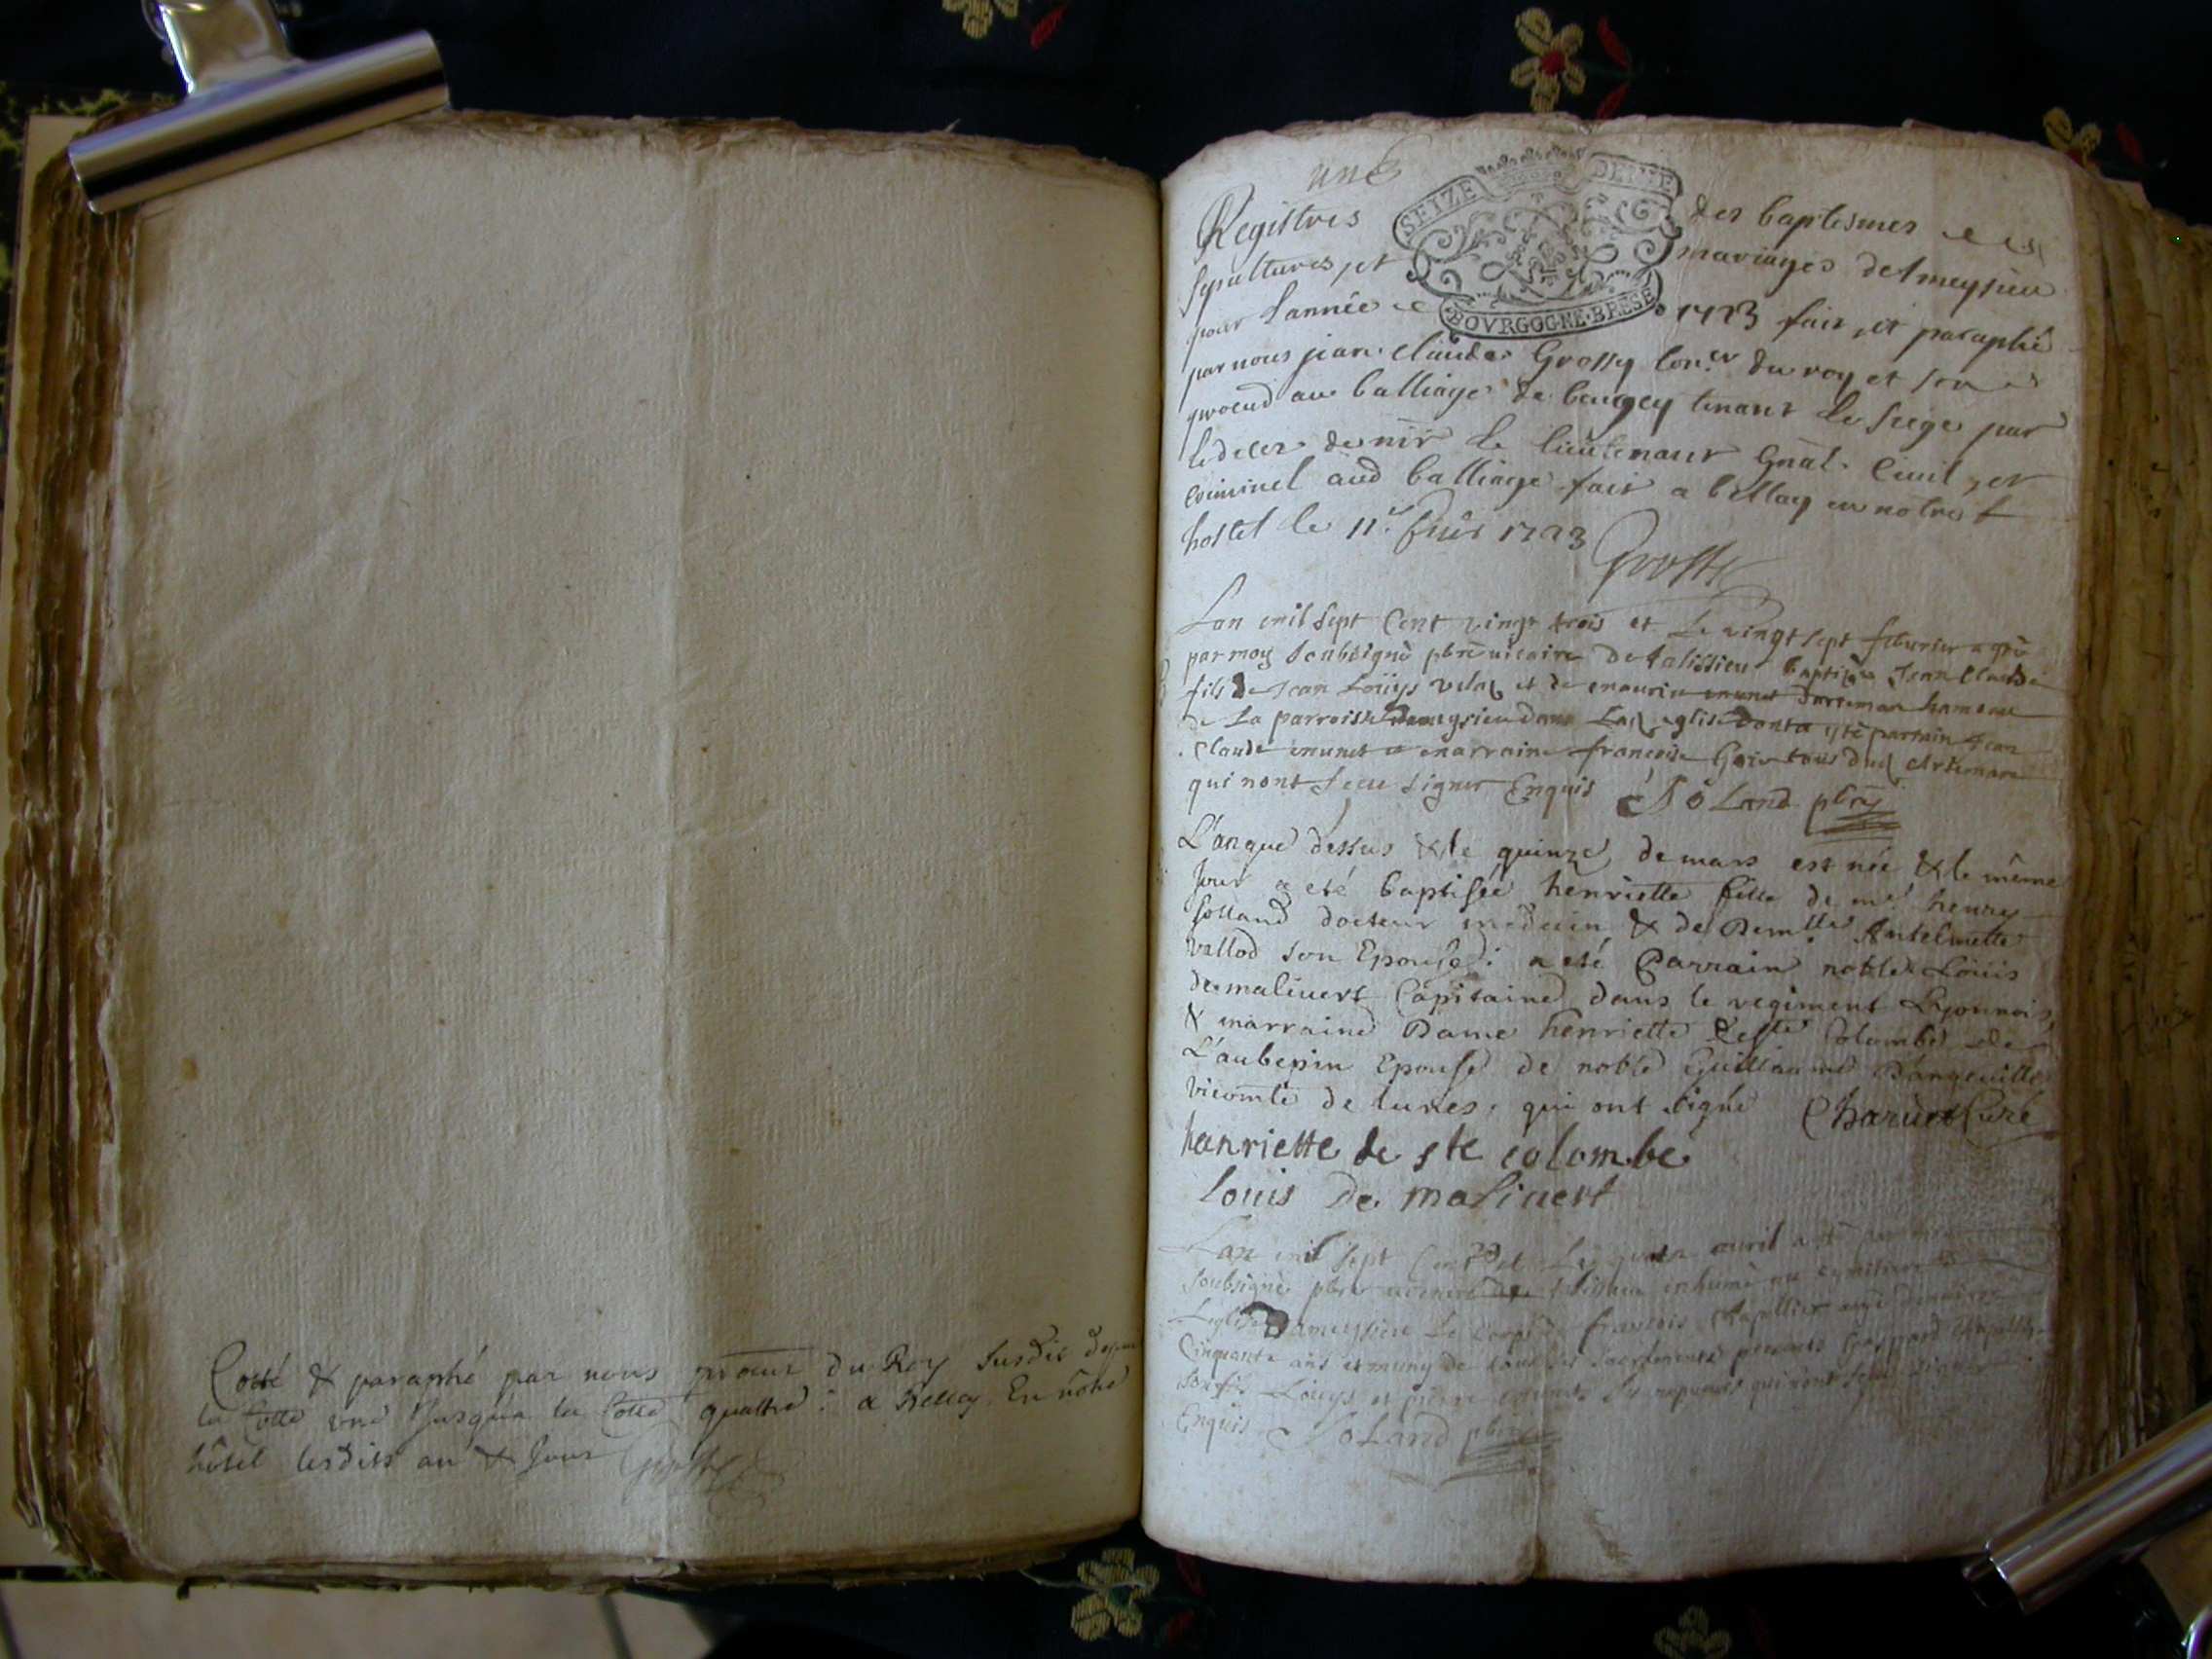 Cotté & paraphé par nous procur du Roy susdit depuis
la Cotte une Jusqua la Cotte quattre : a Belley En nôtre
hôtel lesdits an & Jour Grossy
une
SEIZE DENIE
BOVRGOGNE·BRESE
Registres des baptesmes
sepultures, et mariages dameysieu
pour l'année 1723 fait, et paraphé
par nous jean claude Grossy Con.er du roy et son
procu.r au balliage de beugey tenant le siege par
le deces de mr le lieutenant Gnal. Civil, et
criminel aud balliage fait a bellay en notre
hostel le 11.e 1723 Grossy
Lan mil sept Cent vingt trois et Le vingt sept feburier a esté
par moy soubsigné pbre vicaire de talissieu baptizé Jean Claude
fils de Jean Loüys et de munet hameau
de La parroisse dameysieu dans Lad eglise dont a esté parrain Jean
Claude munet et marraine francoise tous dud Artemare
qui nont sceu signer Enquis J Soland pbre
L'an que dessus & le quinze de mars est née & le même
Jour a eté baptisée henriette fille de me henry
solland docteur medecin & de Demlle Antelmette
vallod son Epouse: a eté Parrain noble Loüis
de malivert Capitaine dans le regiment Lyonnois,
& marraine Dame henriette de ste Colombe de
L'aubepin Epouse de noble Guillaume Dangeville
vicomte de lunes, qui ont signé Charvet Curé
henriette de ste colombe
louis De malivert
Lan mil sept Cent 23 et Le avril a esté par moy
soubsigné pbre vicaire de talissieu inhumé au cymitiere de
Leglise Dameysieu Le Corps de francois Chapellier agé denviron
Cinquante ans et muny de tous les sacrements presents Gaspard Chapellier
son fils Louys et pierre munet qui nont sceu signer
Enquis J Soland pbre